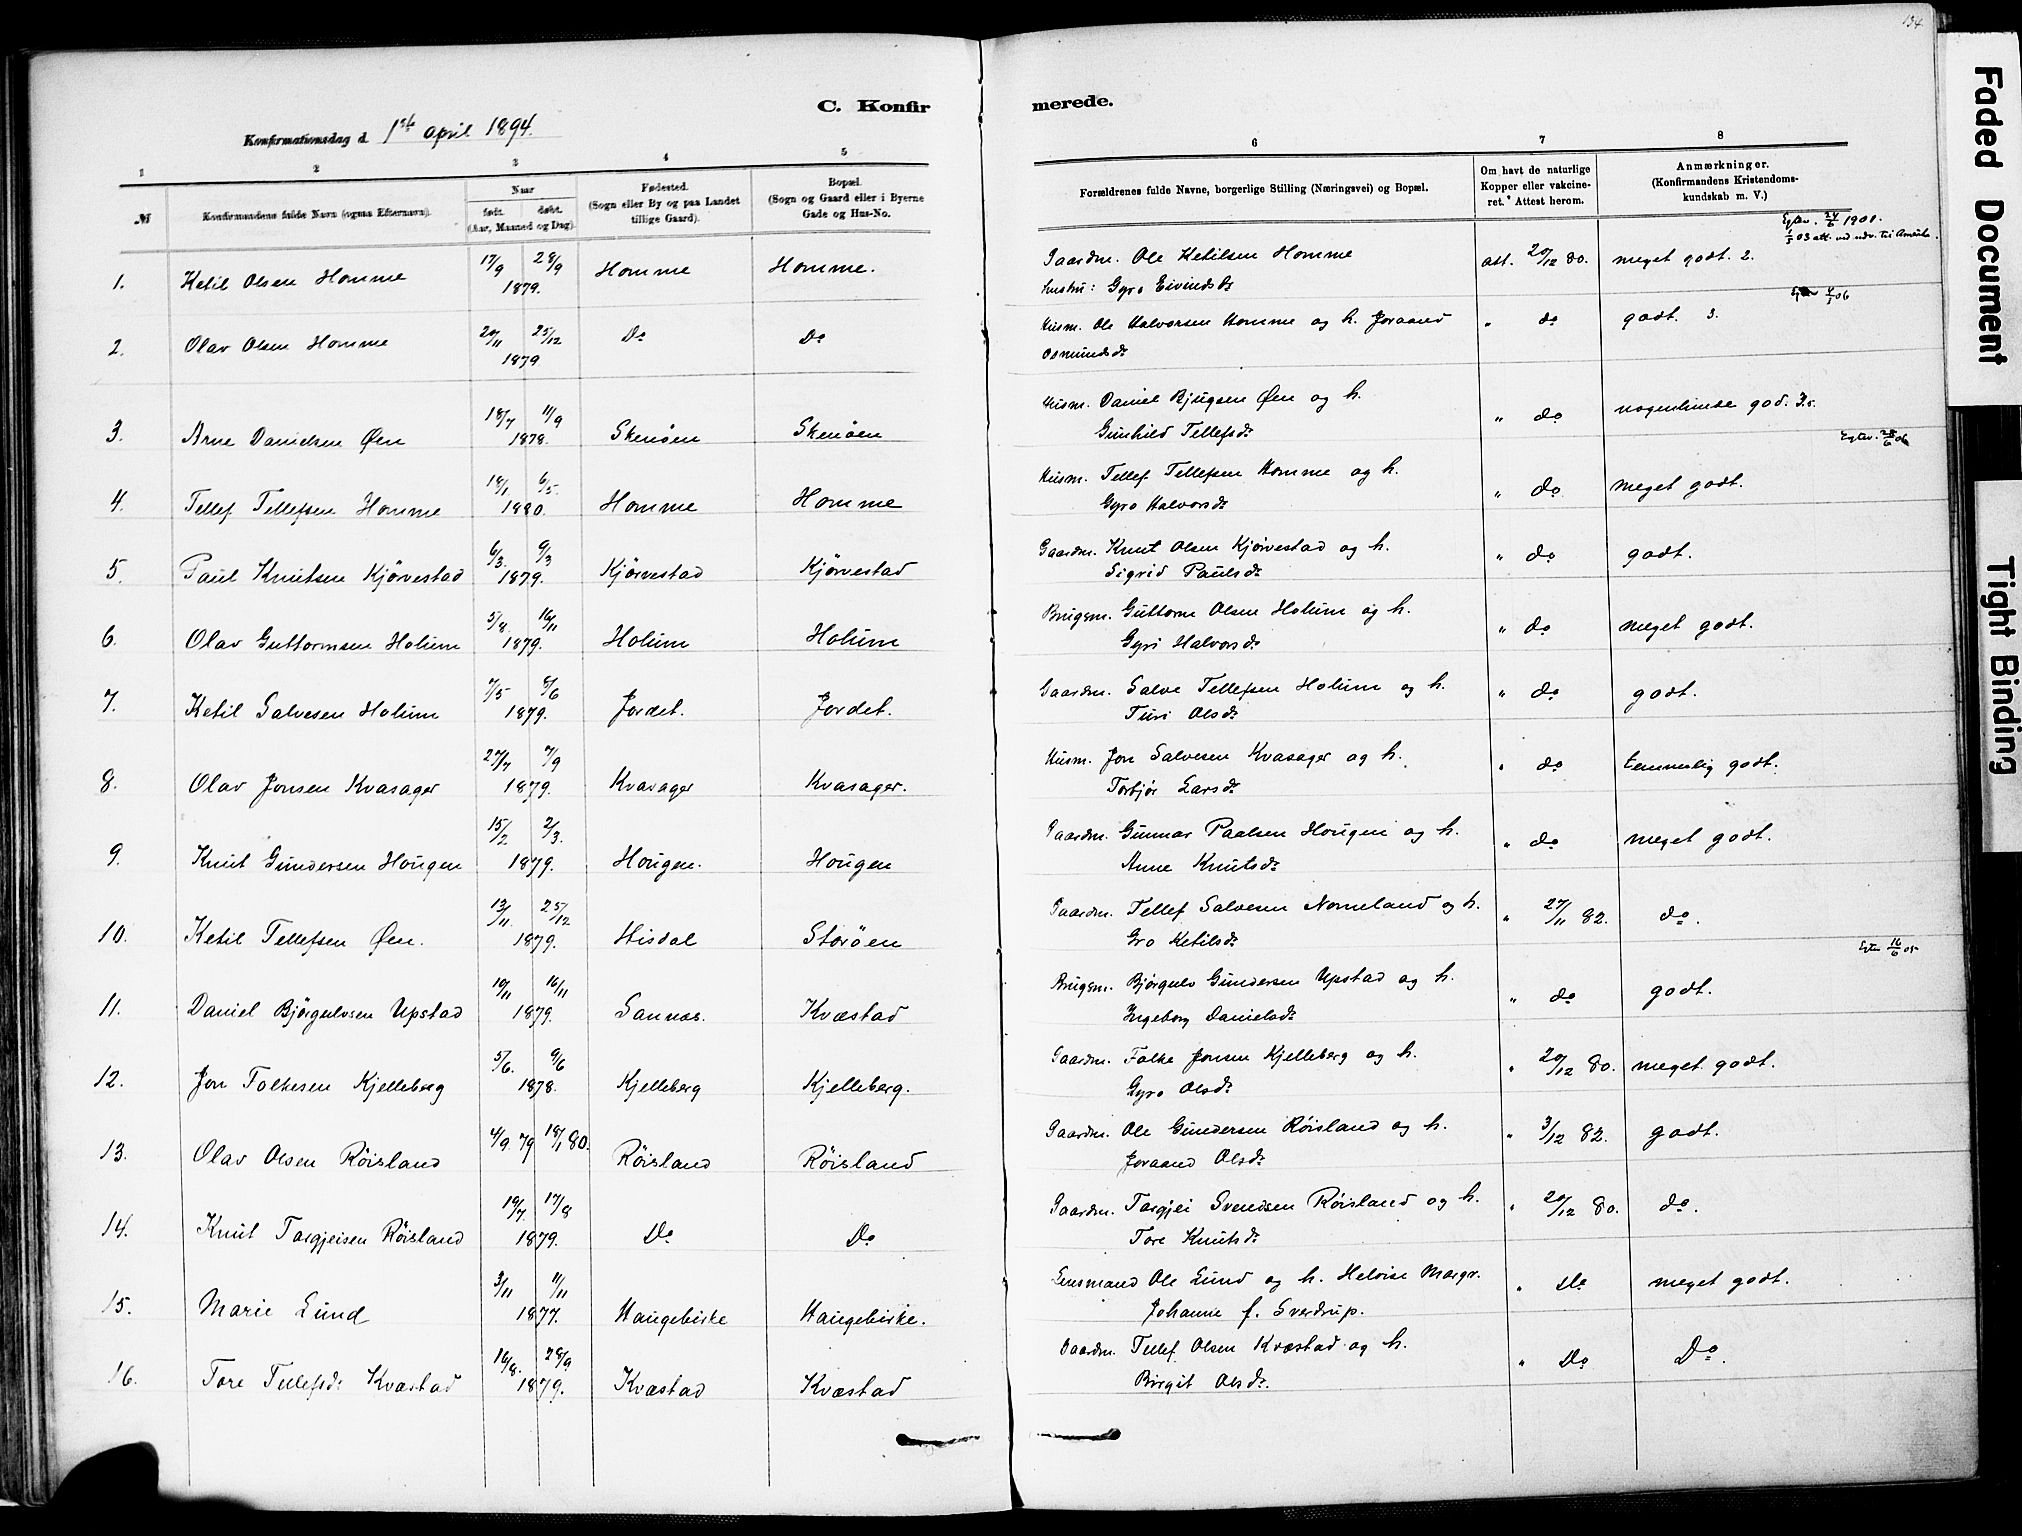 134
C. Konfirmerede.
Konfirmationsdag d. 1ste april 1894.
1 2 3 4 5 6 7 8
№
Konfirmandens fulde Navn (ogsaa Efternavn).
Naar
født. døbt.
(Aar, Maaned og Dag).
Fødested.
(Sogn eller By og paa Landet
tillige Gaard).
Bopæl.
(Sogn og Gaard eller i Byerne
Gade og Hus-No.
Forældrenes fulde Navne, borgerlige Stilling (Næringsvei) og Bopæl.
Om havt de naturlige
Kopper eller vakcine-
ret.* Attest herom.
Anmærkninger.
(Konfirmandens Kristendoms-
kundskab m. V.)
1901.
1. Ketil Olsen Homme 17/9 28/9 1879. Homme Homme. Gaardm. Ole Ketilsen Homme att. 20/12 80. meget godt. 2.
hustru: Gyro Eivindsdr
2. Olav Olsen Homme 20/11 25/12 1879 Do Do Husm. Ole Halvorsen Homme og h. Joraand " do godt. 3.
Osmundsdr
3. Arne Danielsen Øen 18/7 11/9 1878. Skenøen Skenøen Husm. Daniel Bjugsen Øen og h. " do nogenlunde god.
Gunhild Tellefsdr
4. Tellef Tellefsen Homme 18/1 6/5. 1880. Homme Homme Husm. Tellef Tellefsen Homme og h. " do meget godt.
Gyro Halvorsdr
5. Paul Knutsen Kjörvestad 6/3. 9/3 1879. Kjörvestad Kjörvestad Gaardm. Knut Olsen Kjörvestad og h. " do godt.
Sigrid Paulsdr
6. Olav Guttormsen Holum 5/8. 16/11 1879. Holum Holum Brugsm. Guttorm Olsen Holum og h. " do meget godt.
Gyri Halvorsdr
7. Ketil Salvesen Holum 7/5 8/6 1879. Jordet. Jordet. Gaardm. Salve Tellefsen Holum og h. " do godt.
Turi Olsdr
8. Olav Jonsen Kvasager 27/7 7/9 1879. Kvasager Kvasager. Husm. Jon Salvesen Kvasager og h. " do temmelig godt.
Torbjør Larsdr
9. Knut Gundersen Hougen 15/2 2/3. 1879. Hougen. Hougen Gaardm. Gunnar Paalsen Hougen og h. " do meget godt.
Anne Knutsdr
10. Ketil Tellefsen Øen. 13/11. 25/12 1879. Hisdal Storøen Gaardm. Tellef Salvesen Nomeland og h. " 27/11 82. do.
Gro Ketilsdr
11. Daniel Björgulvsen Upstad 10/11 16/11 1879. Sannes. Kvæstad Brugsm. Bjørgulv Gundersen Upstad og h. " do godt.
Ingeborg Danielsdr
12. Jon Folkesen Kjelleberg 5/6. 9/6 1878. Kjelleberg Kjelleberg. Gaardm. Folke Jonsen Kjelleberg og h. " 20/12 80. meget godt.
Gyro Olsdr
13. Olav Olsen Röisland 4/9. 79 18/1 80. Röisland Röisland Gaardm. Ole Gundersen Röisland og h. " 3/12 82. godt.
Joraand Olsdr
14. Knut Torgjeisen Röisland 19/7. 17/8 1879. Do Do Gaardm. Torgjei Svendsen Röisland og h. " 20/12 80. do.
Tore Knutsdr
15. Marie Lund 3/11 11/11 1877. Haugebirke Haugebirke. Lensmand Ole Lund og h. Heloise Margr. " do meget godt.
Johanne f. Sverdrup.
16. Tore Tellefsdr Kvæstad 16/8. 28/9 1879. Kvæstad Kvæstad Gaardm. Tellef Olsen Kvæstad og h. " Do Do.
Birgit Olsdr.
Faded Document
Tight Binding